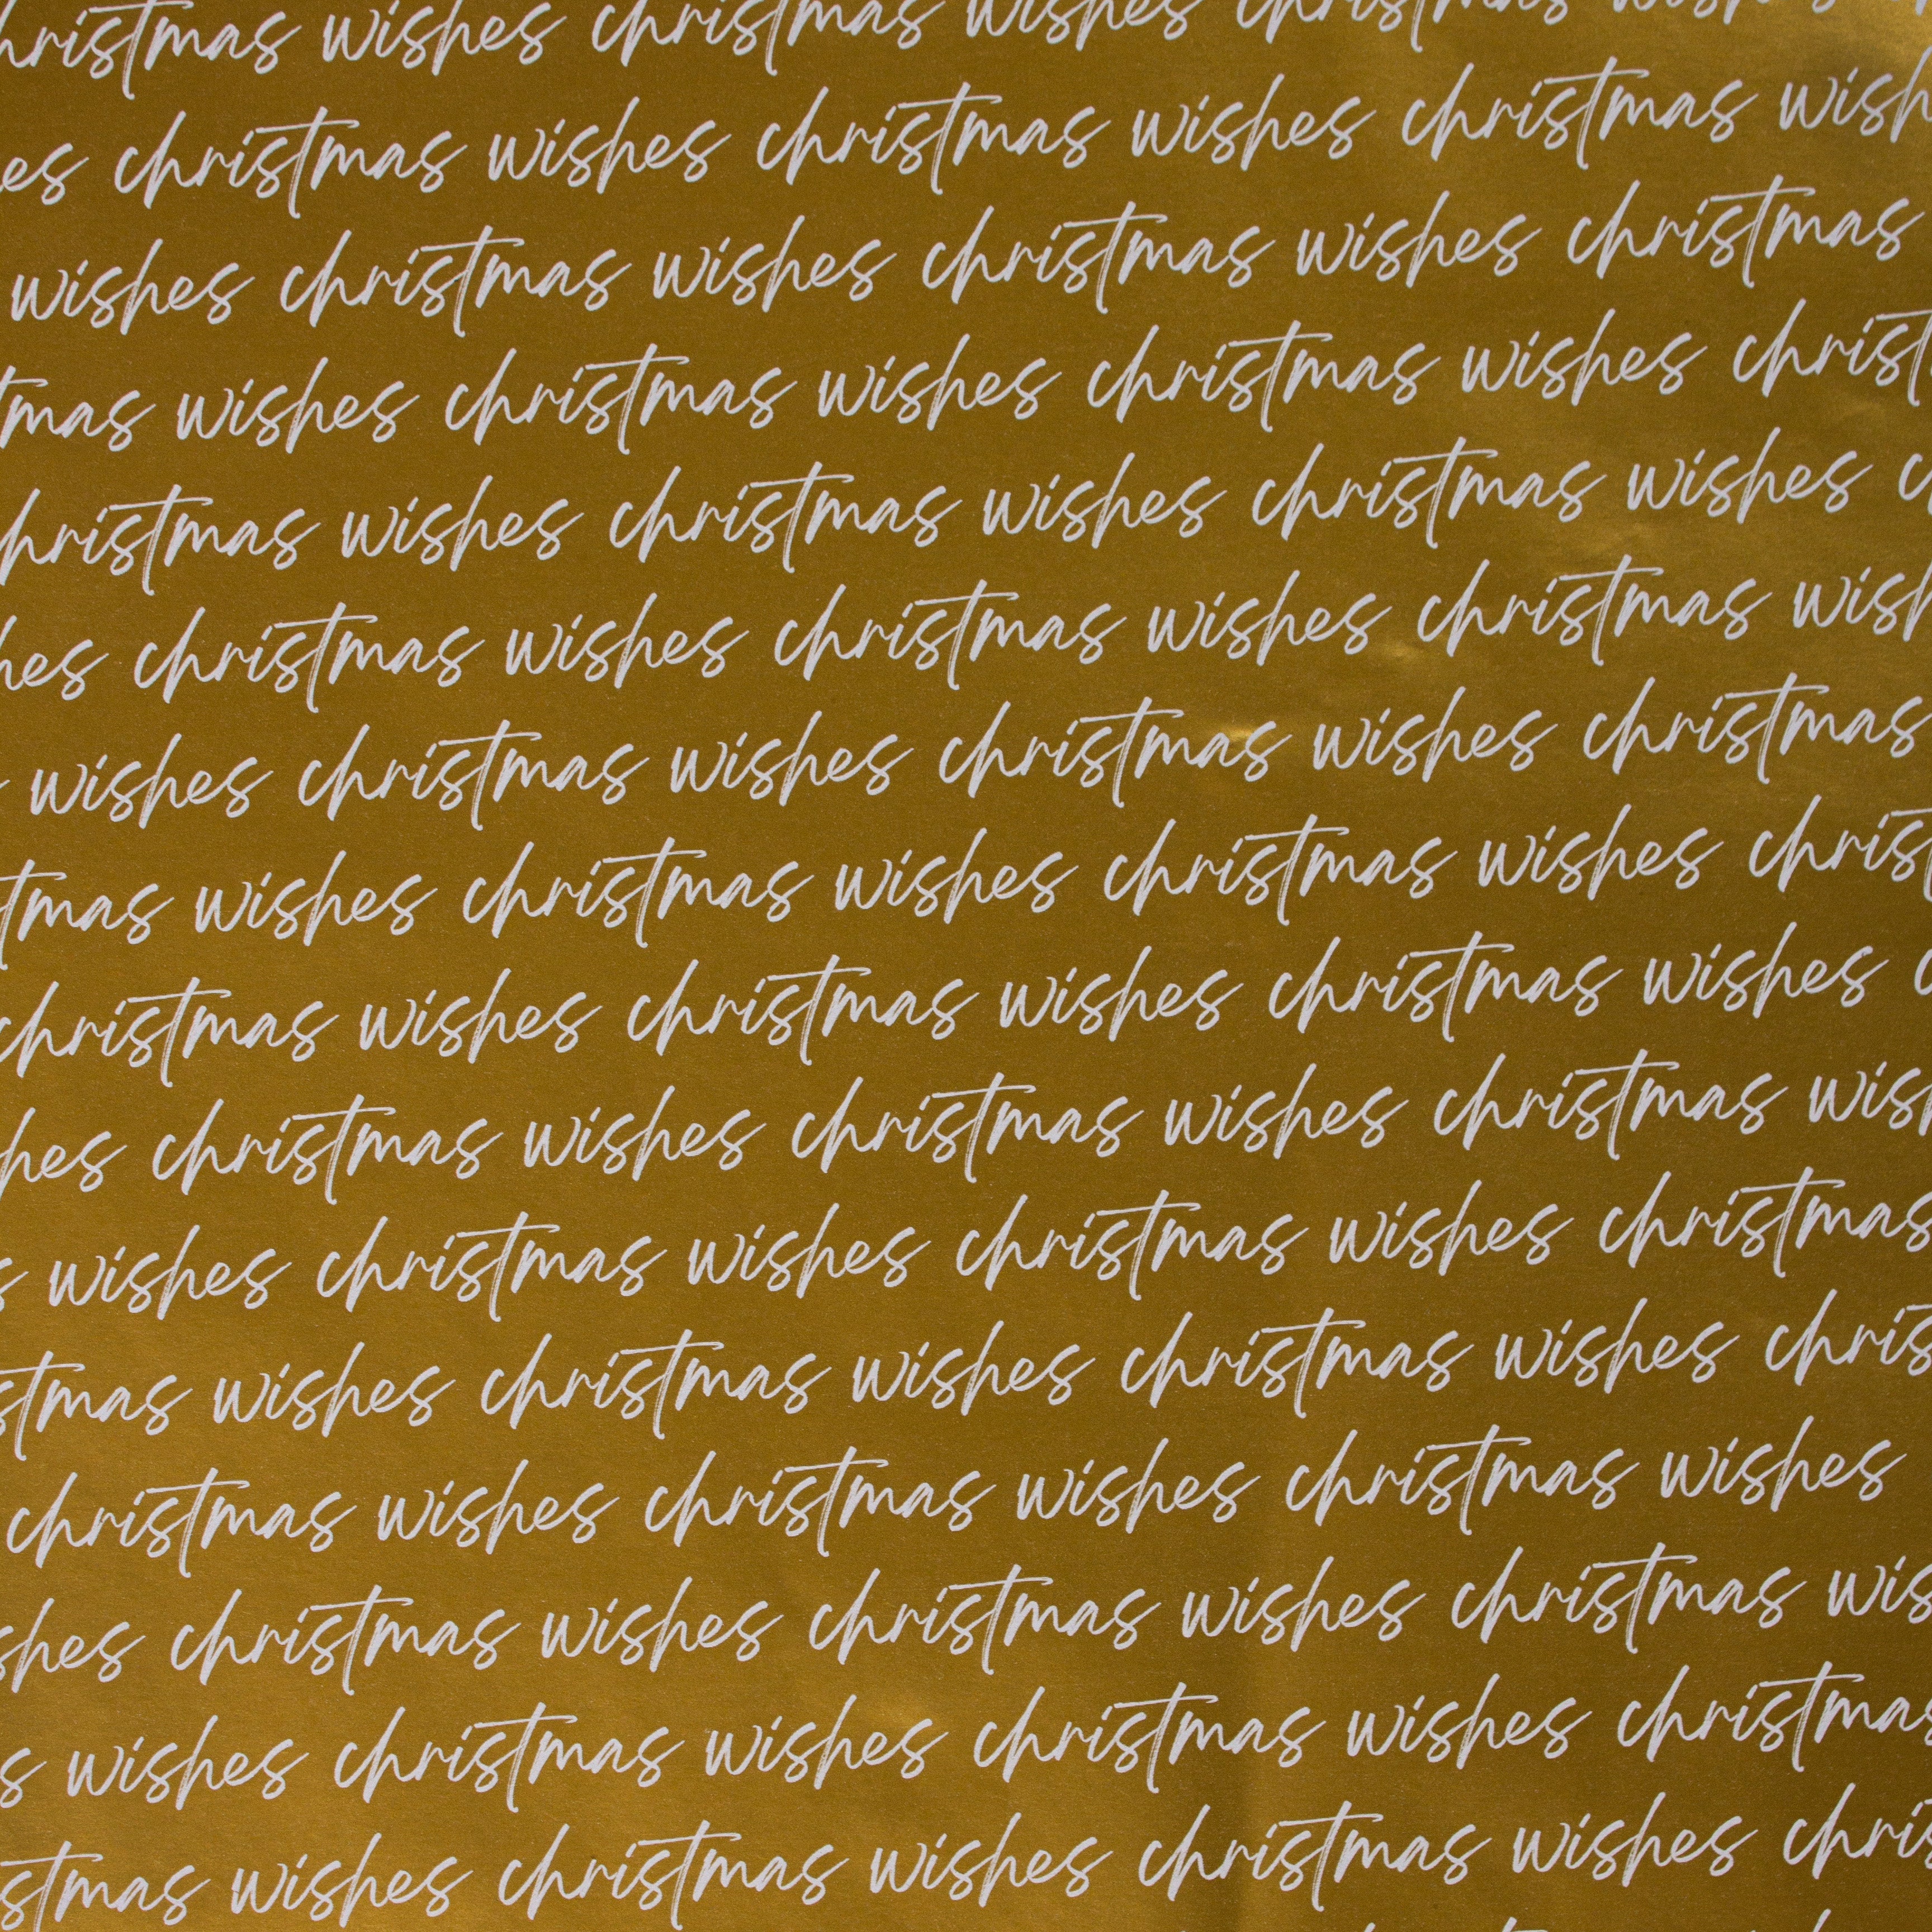 christmas wishes christmas wishes christmas wishes
es christmas wishes christmas wishes christmas wish
wishes christmas wishes christmas wishes christmas
tmas wishes christmas wishes christmas wishes christ
christmas wishes christmas wishes christmas wishes c
hes christmas wishes christmas wishes christmas wish
wishes christmas wishes christmas wishes christmas
tmas wishes christmas wishes christmas wishes christ
christmas wishes christmas wishes christmas wishes c
hes christmas wishes christmas wishes christmas wis
s wishes christmas wishes christmas wishes christmas
stmas wishes christmas wishes christmas wishes chris
christmas wishes christmas wishes christmas wishes
shes christmas wishes christmas wishes christmas wis
s wishes christmas wishes christmas wishes christmas
stmas wishes christmas wishes christmas wishes chris